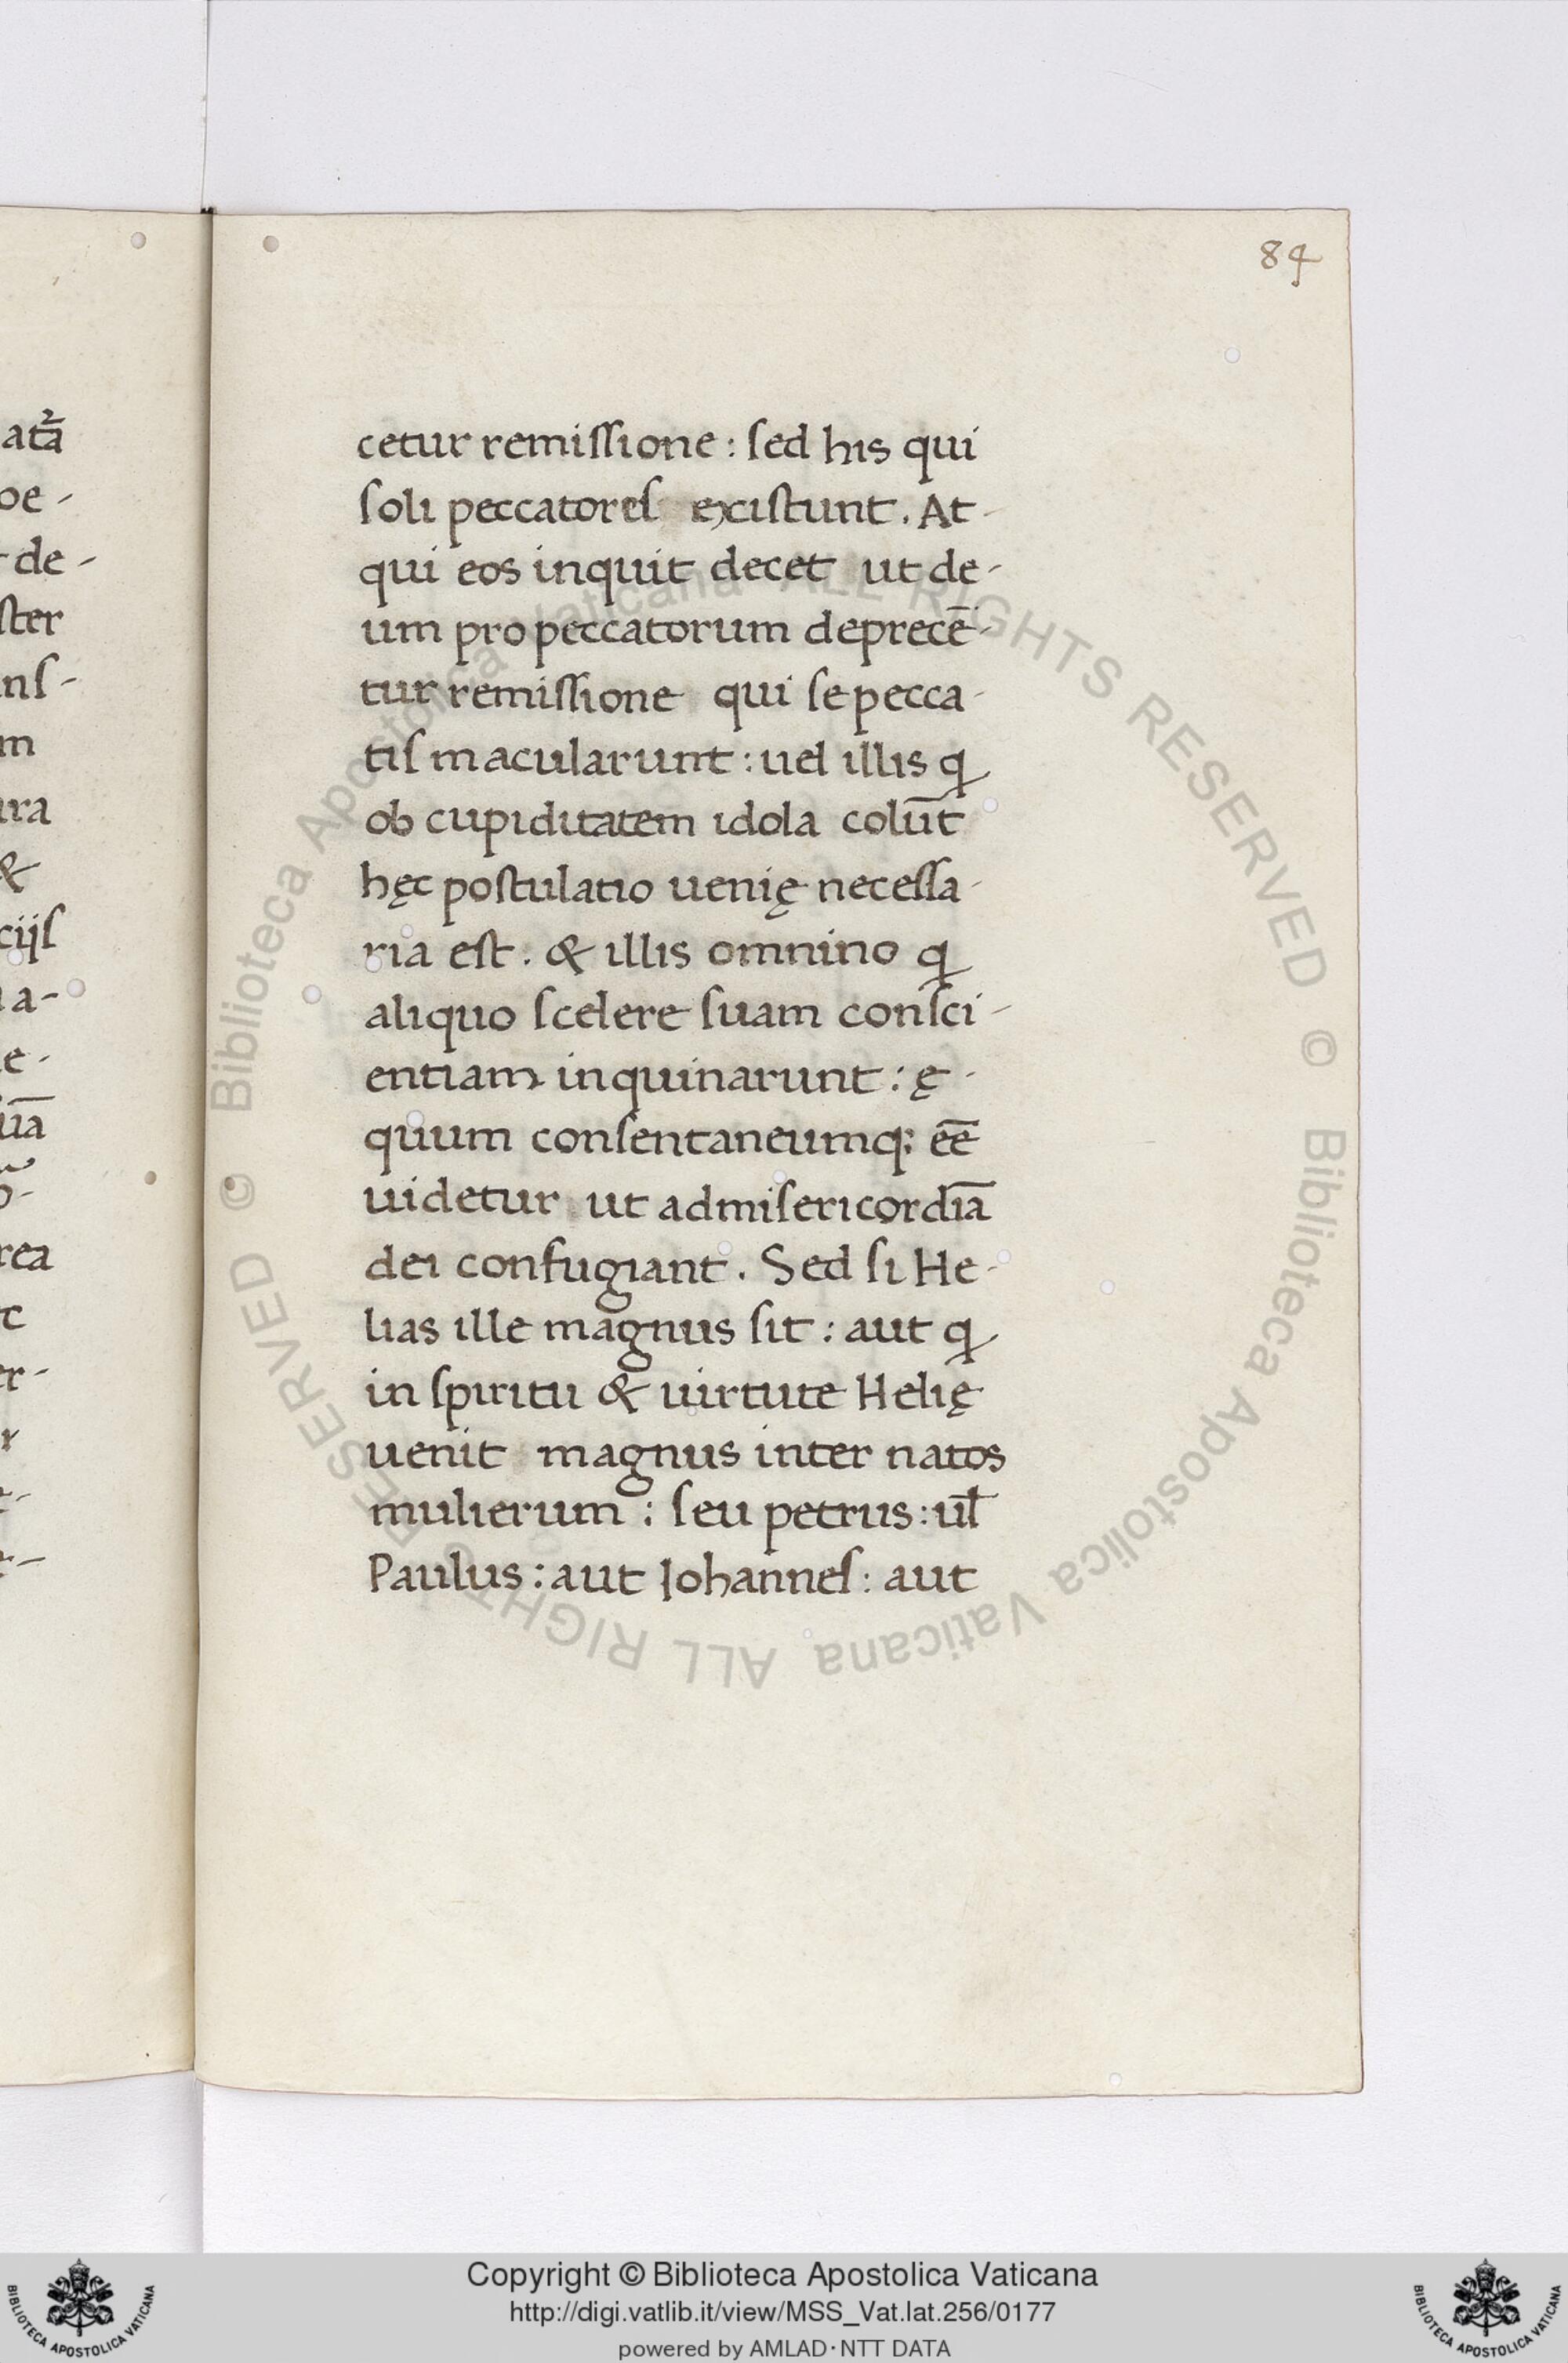 84
cetur remissione: sed his qui
soli peccatores existunt. At-
qui eos inquit decet ut de-
um pro peccatorum deprecē-
tur remissione qui se pecca-
tis macularunt: uel illis q
ob cupiditatem idola colūt
hęc postulatio uenię necessa-
ria est. & illis omnino q
aliquo scelere suam consci-
entiam inquinarunt: ę-
quum consentaneumq; eē
uidetur ut ad misericordiā
dei confugiant. Sed si He-
lias ille magnus sit: aut q
in spiritu & uirtute Helię
uenit magnus inter natos
mulierum: seu petrus: ul̄
Paulus: aut Iohannes: aut
Copyright © Biblioteca Apostolica Vaticana
http://digi.vatlib.it/view/MSS_Vat.lat.256/0177
powered by AMLAD·NTT DATA
BIBLIOTECA APOSTOLICA VATICANA
BIBLIOTECA APOSTOLICA VATICANA
© Biblioteca Apostolica Vaticana ALL RIGHTS RESERVED
© Biblioteca Apostolica Vaticana ALL RIGHTS RESERVED